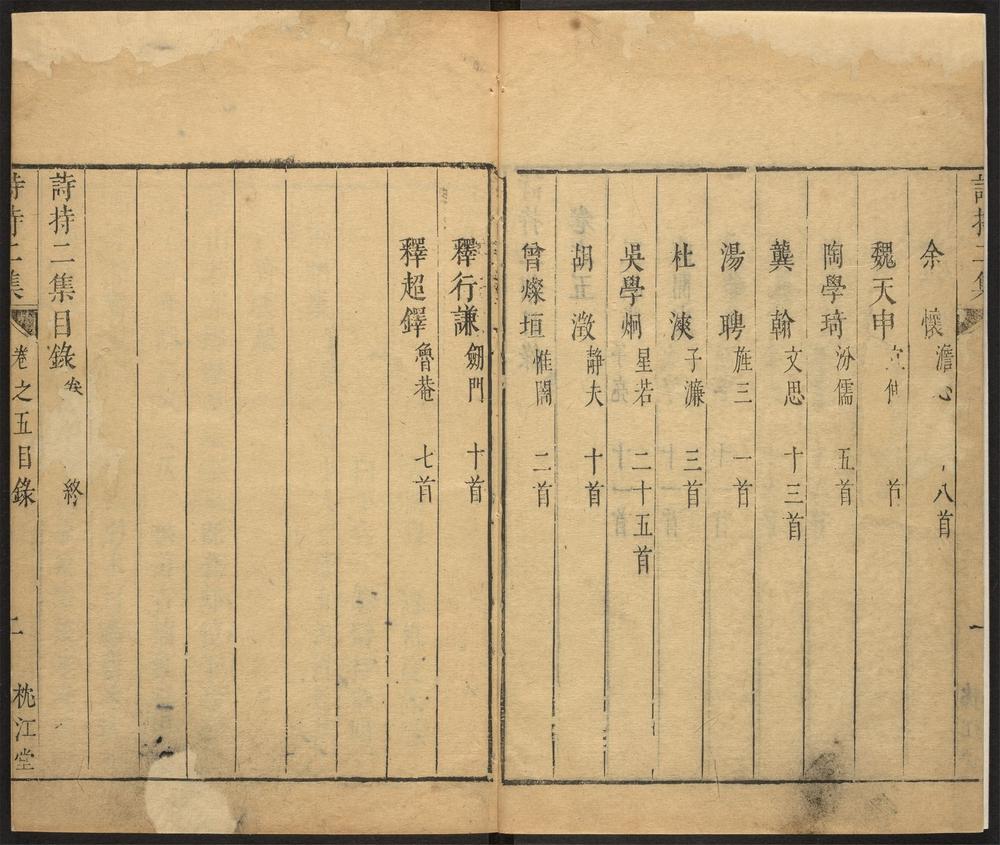 詩持二集
一
余懷 澹心 八首
魏天申 首
陶學琦 汾儒 五首
龔翰 文思 十三首
湯聘 旌三 一首
杜漺 子濂 三首
吳學炯 星若 二十五首
胡五澂 靜夫 十首
曾燦垣 惟闇 二首
釋行謙 劒門 十首
釋超鐸 魯菴 七首
詩持二集目錄 終
詩持二集 卷之五目錄 二 枕江堂